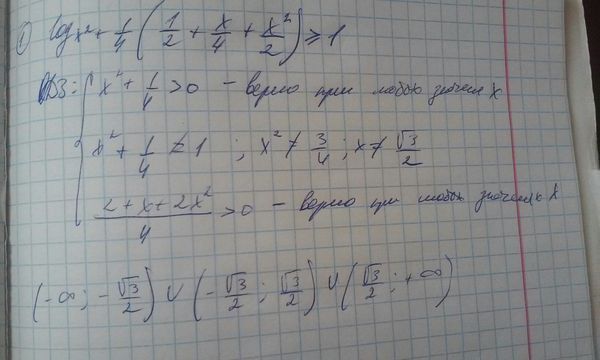 ① log x² + 1/4 (1/2 + x/4 + x²/2) ⩾ 1
ОДЗ: { x² + 1/4 > 0 – верно при любых значен x
x² + 1/4 ≠ 1 ; x² ≠ 3/4 ; x ≠ √3/2
(2 + x + 2x²)/4 > 0 – верно при любых значениях x
(-∞ ; -√3/2) ∪ (-√3/2 ; √3/2) ∪ (√3/2 ; +∞)